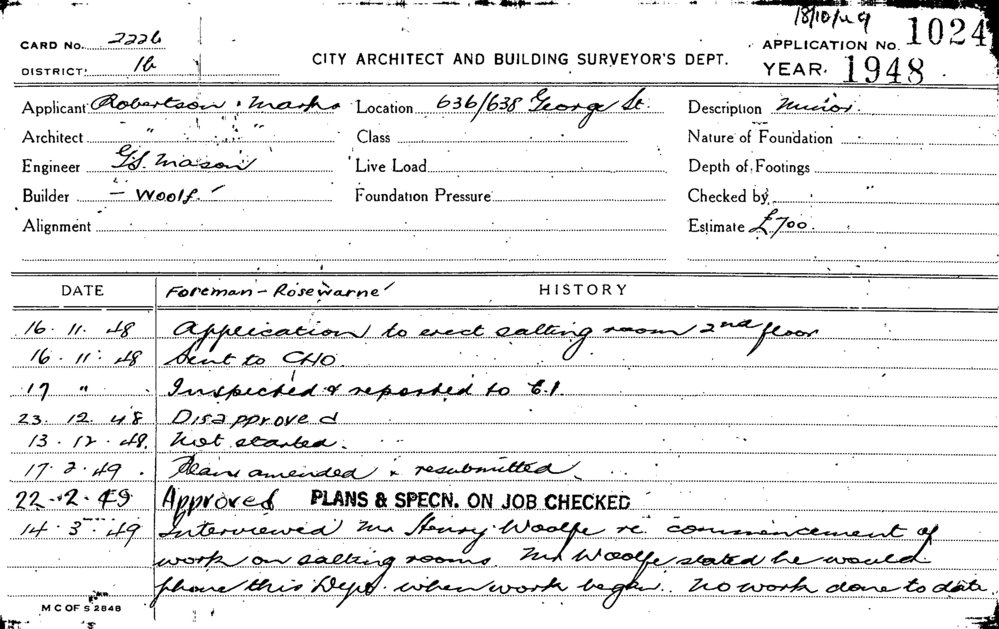 18/10/49
CARD No. 2226
APPLICATION No. 1024
DISTRICT. 16
CITY ARCHITECT AND BUILDING SURVEYOR'S DEPT.
YEAR. 1948
Applicant Robertson & Marks Location 636/638 George St. Description Minor.
Architect " " Class Nature of Foundation
Engineer G.S. Mason Live Load Depth of Footings
Builder — Woolf. Foundation Pressure Checked by
Alignment Estimate £700.
DATE Foreman - Rosewarne HISTORY
16. 11. 48 Application to erect salting room 2nd floor
16. 11. 48 Sent to CHO.
17 " Inspected & reported to
23. 12. 48 Disapproved
13. 12. 48. Not started.
17. 2. 49. Plans amended & resubmitted
22. 2. 49 Approved PLANS & SPECN. ON JOB CHECKED
14. 3. 49 Interviewed Mr Henry Woolfe re commencement of
work on salting rooms. Mr Woolfe stated he would
phone this Dept. when work began. No work done to date.
M C OF S 2848